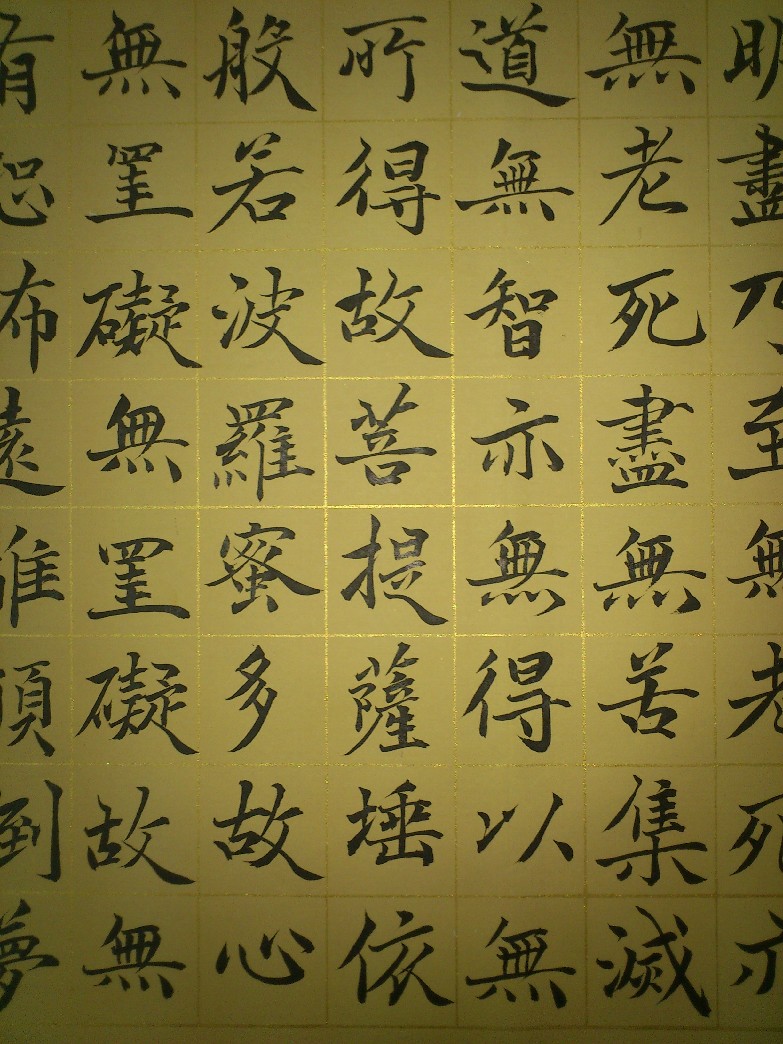 明盡乃至無老死亦
無老死盡無苦集滅
道無智亦無得以無
所得故菩提薩埵依
般若波羅蜜多故心
無罣礙無罣礙故無
有恐怖遠離顛倒夢